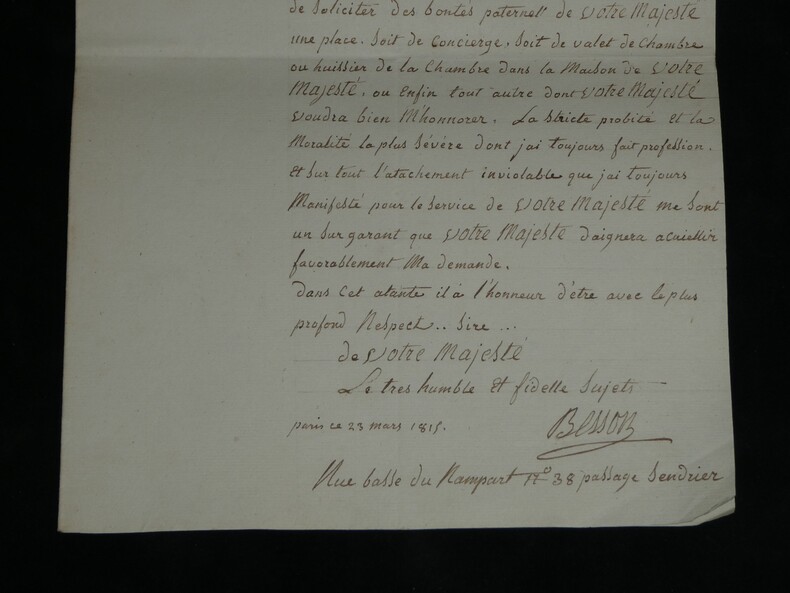 de soliciter des bontés paternell de votre Majesté
une place. soit de concierge. soit de valet de chambre
ou huissier de la chambre dans la Maison de votre
Majesté. ou enfin tout autre dont votre Majesté
voudra bien M'honnorer. La stricte probité et la
Moralité la plus sévère dont jai toujours fait profession.
et sur tout l'atachement inviolable que jai toujours
Manifesté pour le service de votre Majesté me sont
un sur garant que votre Majesté daignera acuiellir
favorablement Ma demande.
dans cet atante il à l'honneur d'être avec le plus
profond Respect.. sire ...
de votre Majesté
Le tres humble et fidelle sujets
paris ce 23 mars 1815.
Besson
Rue basse du Rampart N° 38 passage sendrier